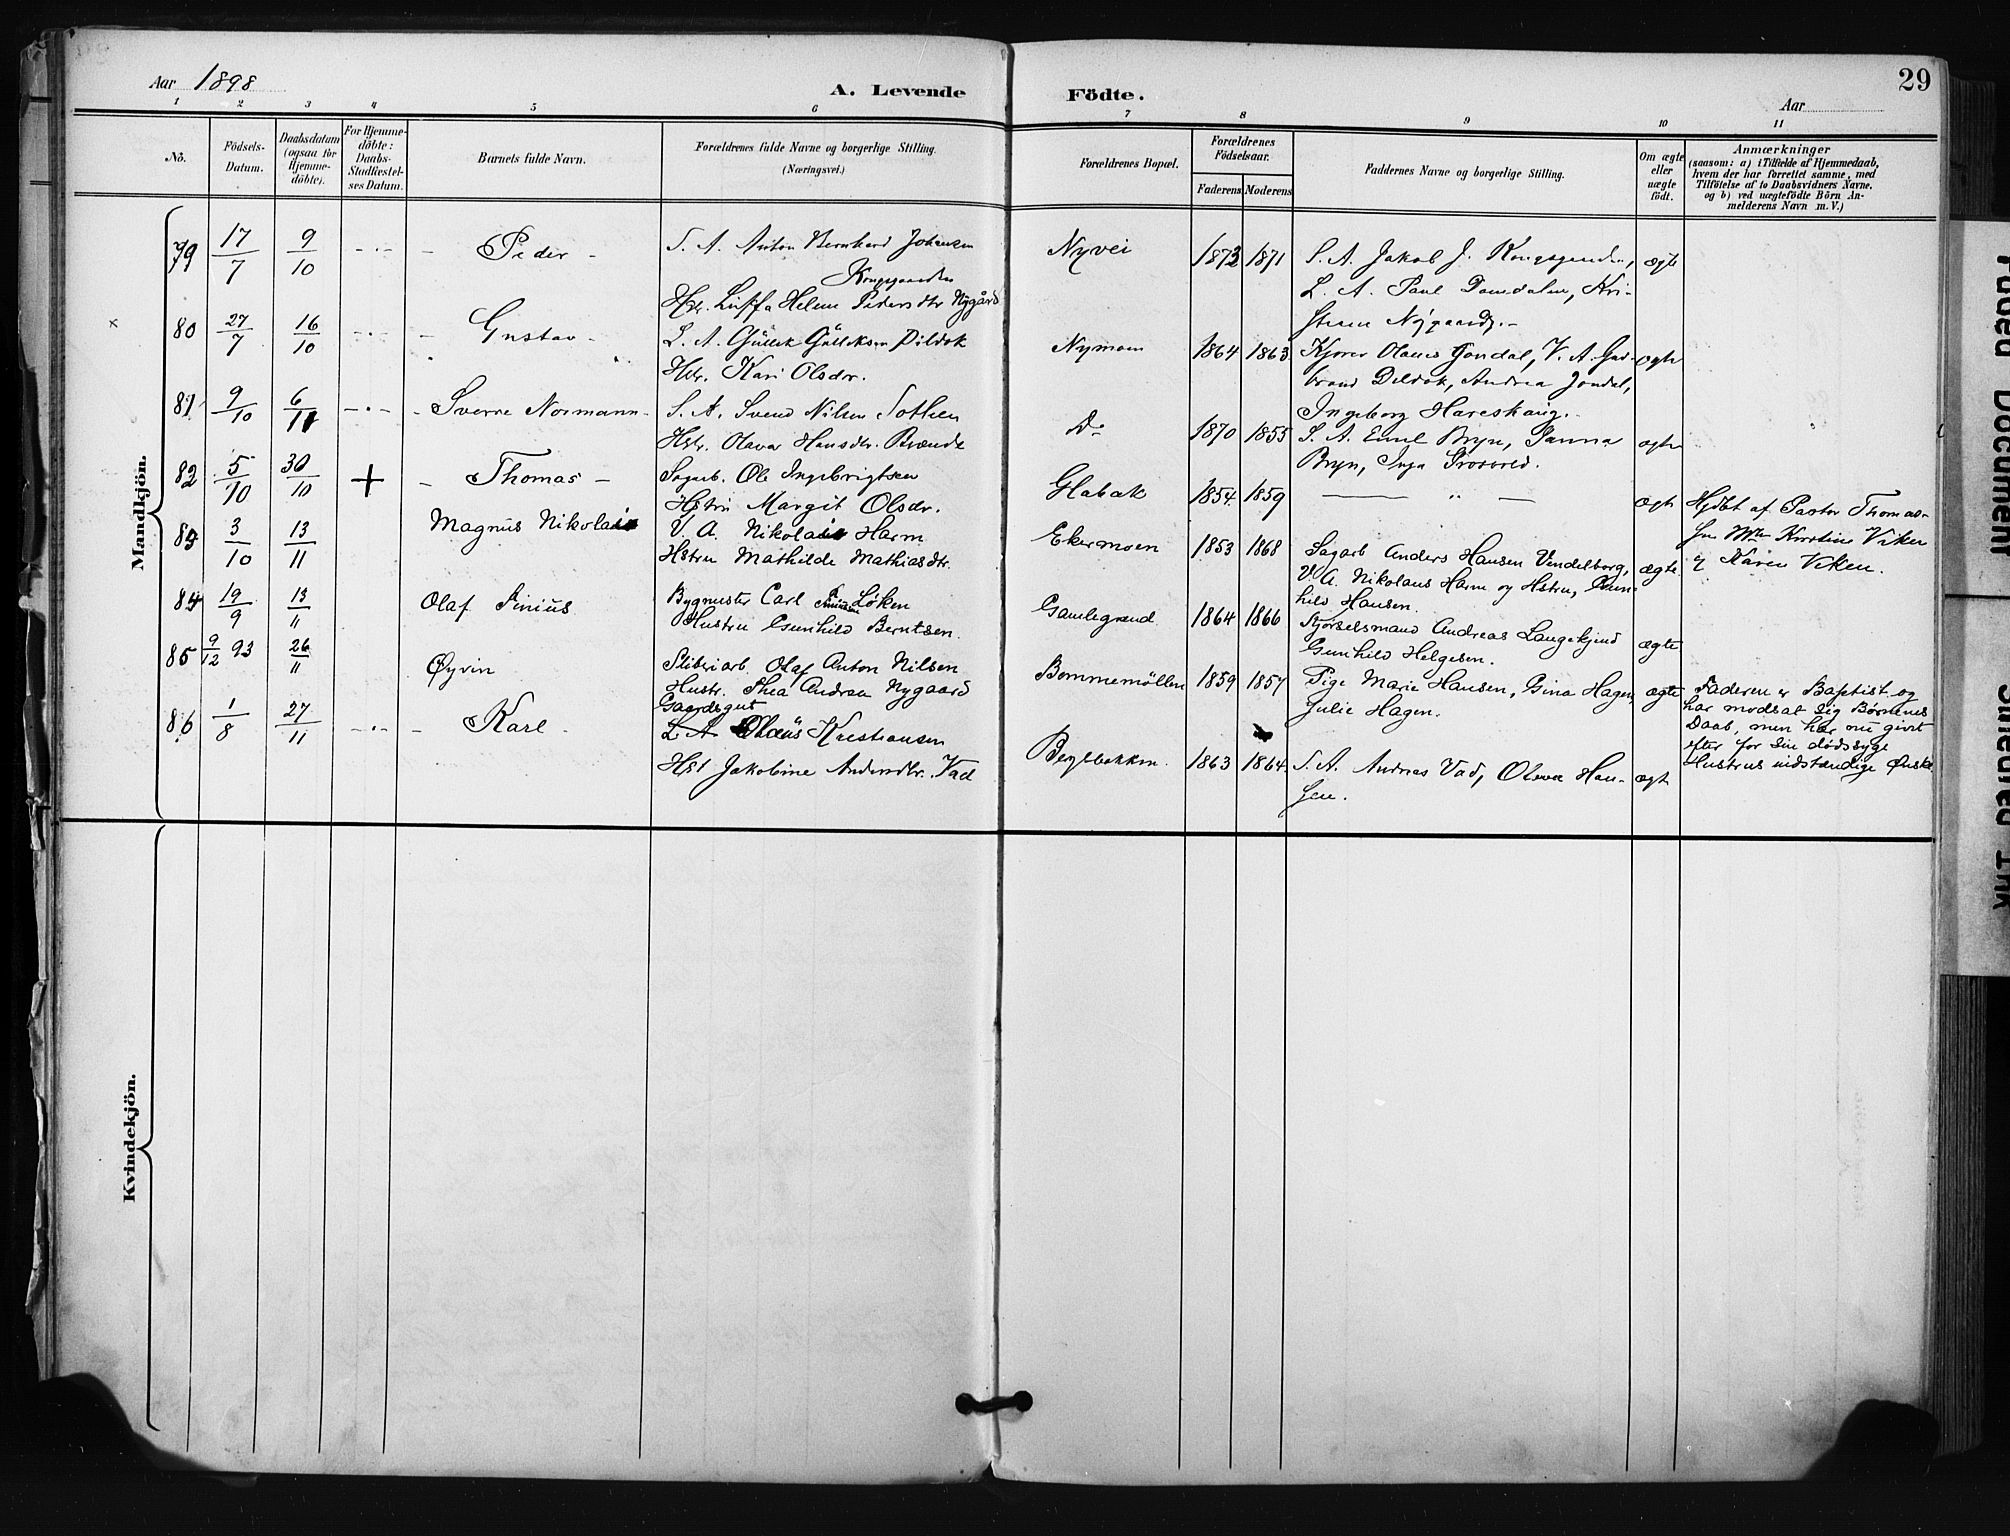 Aar 1898
A. Levende Födte.
29
Aar
1 2 3 4 5 6 7 8 9 10 11
No.
Födsels-Datum.
Daabsdatum (ogsaa for Hjemme-döbte).
For Hjemme-döbte: Daabs-Stadfæstel-ses Datum.
Barnets fulde Navn.
Forældrenes fulde Navne og borgerlige Stilling. (Næringsvei.)
Forældrenes Bopæl.
Forældrenes Födselsaar.
Faderens Moderens
Faddernes Navne og borgerlige Stilling.
Om ægte eller uægte født.
Anmærkninger
(saasom: a) i Tilfælde af Hjemmedaab,
hvem der har forrettet samme, med
Tilföielse af to Daabsvidners Navne.
og b) ved uægtefödte Börn An-
melderens Navn m. V.)
Mandkjön.
79 17/7 9/10 Peder
S. A. Anton Bernhard Johansen
Kongsgaarden
Helene Pedersdtr Nygård
Nyvei 1873 1871
S. A. Jakob J.
L. A. Paul
ægte
80 27/7 16/10 Gustav
L. A. Güllik Gülliksen Dildok
Hstr. Kari Olsdtr.
Nymoen 1864 1863
Olaus Jondal, V. A. Gud-
brand Dildok, Andrea Jondal,
Ingeborg Hareskaug.
ægte
81 9/10 6/11 Sverre Normann
S. A. Svend Nilsen
Hstr. Olava Hansdtr.
Do 1870 1855
S. A. Emil Bryn,
Bryn, Inga
ægte
82 5/10 30/10 + Thomas
Sagarb. Ole Ingebrigtsen
Hstru Margit Olsdr.
Glabak 1854 1859
ægte
Hjdbt af Pastor Thomas-
sen Kirstine Viken
Karen Viken.
83 3/10 13/11 Magnus Nikolai
V. A. Nikolai Harm
Hstru Mathilde Mathiasdtr.
Ekermoen 1853 1868
Sagarb Anders Hansen Vendelborg,
V. A. Nikolaus Harm og Hstru, Gun-
hild Hansen.
ægte
84 19/9 13/11 Olaf Sinius
Bygmester Carl Løken
Hustru Gunhild Berntsen.
Gamlegrend 1864 1866
Kjørselsmand Andreas Langekjend
Gunhild Helgesen.
ægte
85 9/12 93 26/11 Øyvin
Sliberiarb. Olaf Anton Nilsen
Hustr. Thea Andrea Nygaard
Bommemöllen 1859 1857
Pige Marie Hansen, Gina Hagen,
Julie Hagen.
ægte
Faderen er Baptist og
har modsat sig Børnenes
Daab, men har nu givet
efter for sin dødssyge
Hustrus indstændige Ønske
86 1/8 27/11 Karl
Gaardsgut
L. A. Olaüs Kristiansen
Hst Jakobine Andersdtr. Vad
1863 1864
S. A. Andreas Vad, Oleva Han-
sen.
ægte
Kvindekjön.
Faded Document
Smeared Ink